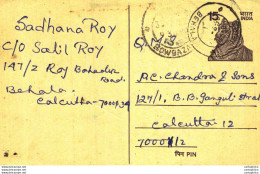 Sadhana Roy
C/O Salil Roy
147/2 Roy Bahadur
Road.
Behala
Calcutta-700034
15
भारत
INDIA
BOWBAZAR
P.C. Chandra & Sons
127/1, B.B. Ganguli Strt
Calcutta-12
700012
पिन PIN